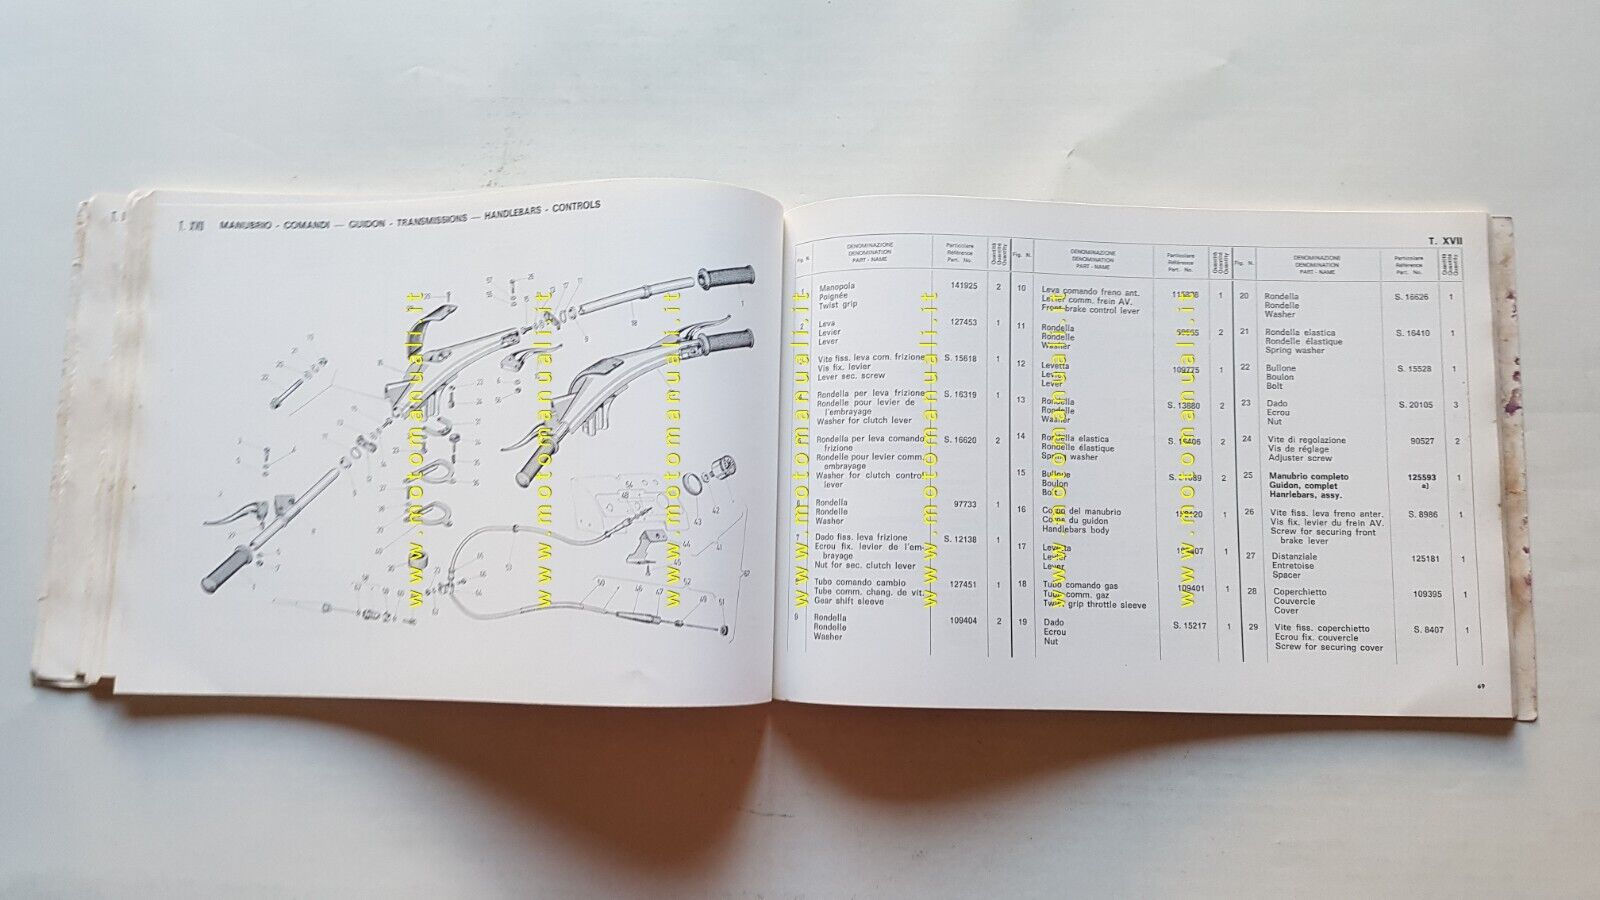 MANUBRIO - COMANDI — GUIDON - TRANSMISSIONS — HANDLEBARS - CONTROLS
T. XVII
Fig. N.
DENOMINAZIONE
DENOMINATION
PART - NAME
Particolare
Référence
Part. No.
Quantità
Quantité
Quantity
1
Manopola 141925 2
Poignée
Twist grip
2
Leva 127453 1
Levier
Lever
Vite fiss. leva com. frizione S. 15618 1
Vis fix. levier
Lever sec. screw
4
Rondella per leva frizione S. 16319 1
Rondelle pour levier de
l'embrayage
Washer for clutch lever
Rondella per leva comando S. 16620 2
frizione
Rondelle pour levier comm.
embrayage
Washer for clutch control
lever
Rondella 97733 1
Rondelle
Washer
7
Dado fiss. leva frizione S. 12138 1
Ecrou fix. levier de l'em-
brayage
Nut for sec. clutch lever
Tubo comando cambio 127451 1
Tube comm. chang. de vit.
Gear shift sleeve
9 Rondella 109404 2
Rondelle
Washer
Fig. N.
DENOMINAZIONE
DENOMINATION
PART - NAME
Particolare
Référence
Part. No.
Quantità
Quantité
Quantity
10 Leva comando freno ant. 1
Levier comm. frein AV.
Front brake control lever
11 Rondella 2
Rondelle
Washer
12 Levetta 109775 1
Levier
Lever
13 Rondella 2
Rondelle
Washer
14 Rondella elastica 2
Rondelle élastique
Spring washer
15 Bullone 2
Boulon
Bolt
16 Corpo del manubrio 1
Corps du guidon
Handlebars body
17 Levetta 1
Levier
Lever
18 Tubo comando gas 109401 1
Tube comm. gaz
Twist grip throttle sleeve
19 Dado S. 15217 1
Ecrou
Nut
Fig. N.
DENOMINAZIONE
DENOMINATION
PART - NAME
Particolare
Référence
Part. No.
Quantità
Quantité
Quantity
20 Rondella S. 16626 1
Rondelle
Washer
21 Rondella elastica S. 16410 1
Rondelle élastique
Spring washer
22 Bullone S. 15528 1
Boulon
Bolt
23 Dado S. 20105 3
Ecrou
Nut
24 Vite di regolazione 90527 2
Vis de réglage
Adjuster screw
25 Manubrio completo 125593 1
Guidon, complet a)
Hanrlebars, assy.
26 Vite fiss. leva freno anter. S. 8986 1
Vis fix. levier du frein AV.
Screw for securing front
brake lever
27 Distanziale 125181 1
Entretoise
Spacer
28 Coperchietto 109395 1
Couvercle
Cover
29 Vite fiss. coperchietto S. 8407 1
Ecrou fix. couvercle
Screw for securing cover
69
www.motomanuali.it
www.motomanuali.it
www.motomanuali.it
www.motomanuali.it
www.motomanuali.it
www.motomanuali.it
www.motomanuali.it